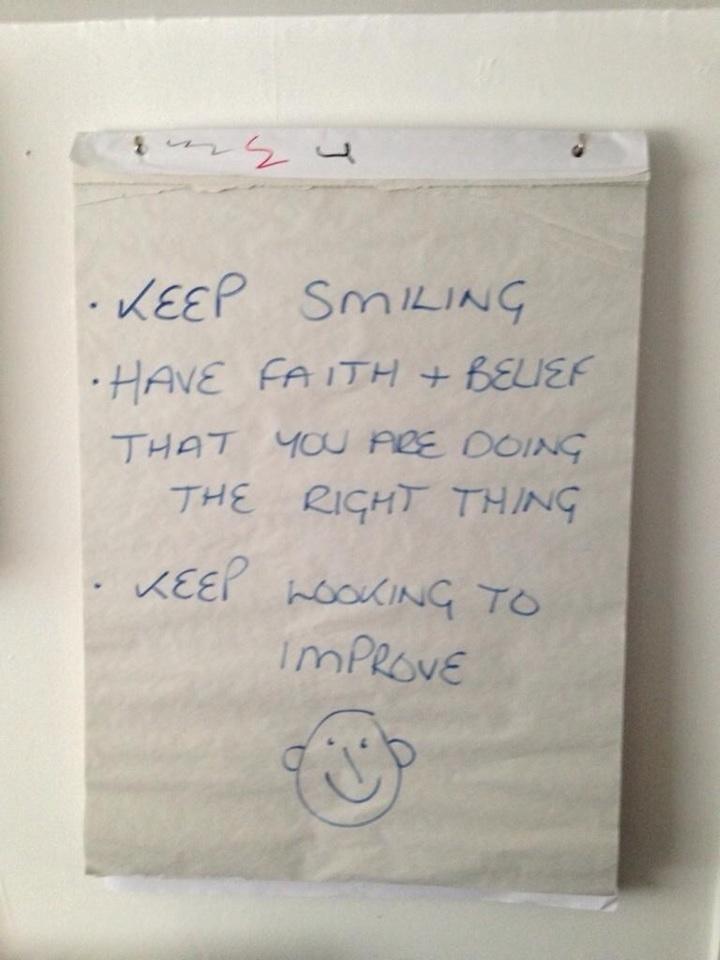 · KEEP SMILING
· HAVE FAITH + BELIEF
THAT YOU ARE DOING
THE RIGHT THING
· KEEP LOOKING TO
IMPROVE